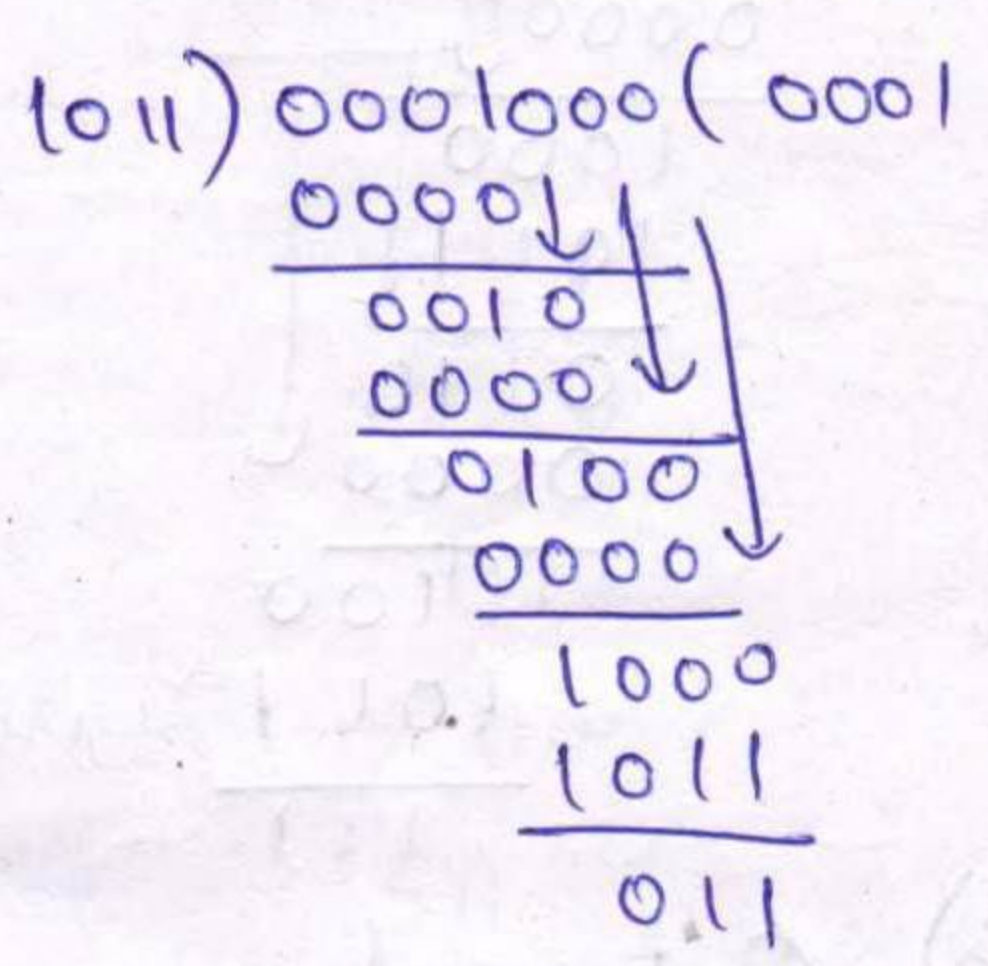 1011)0001000(0001
0000
0010
0000
0100
0000
1000
1011
011